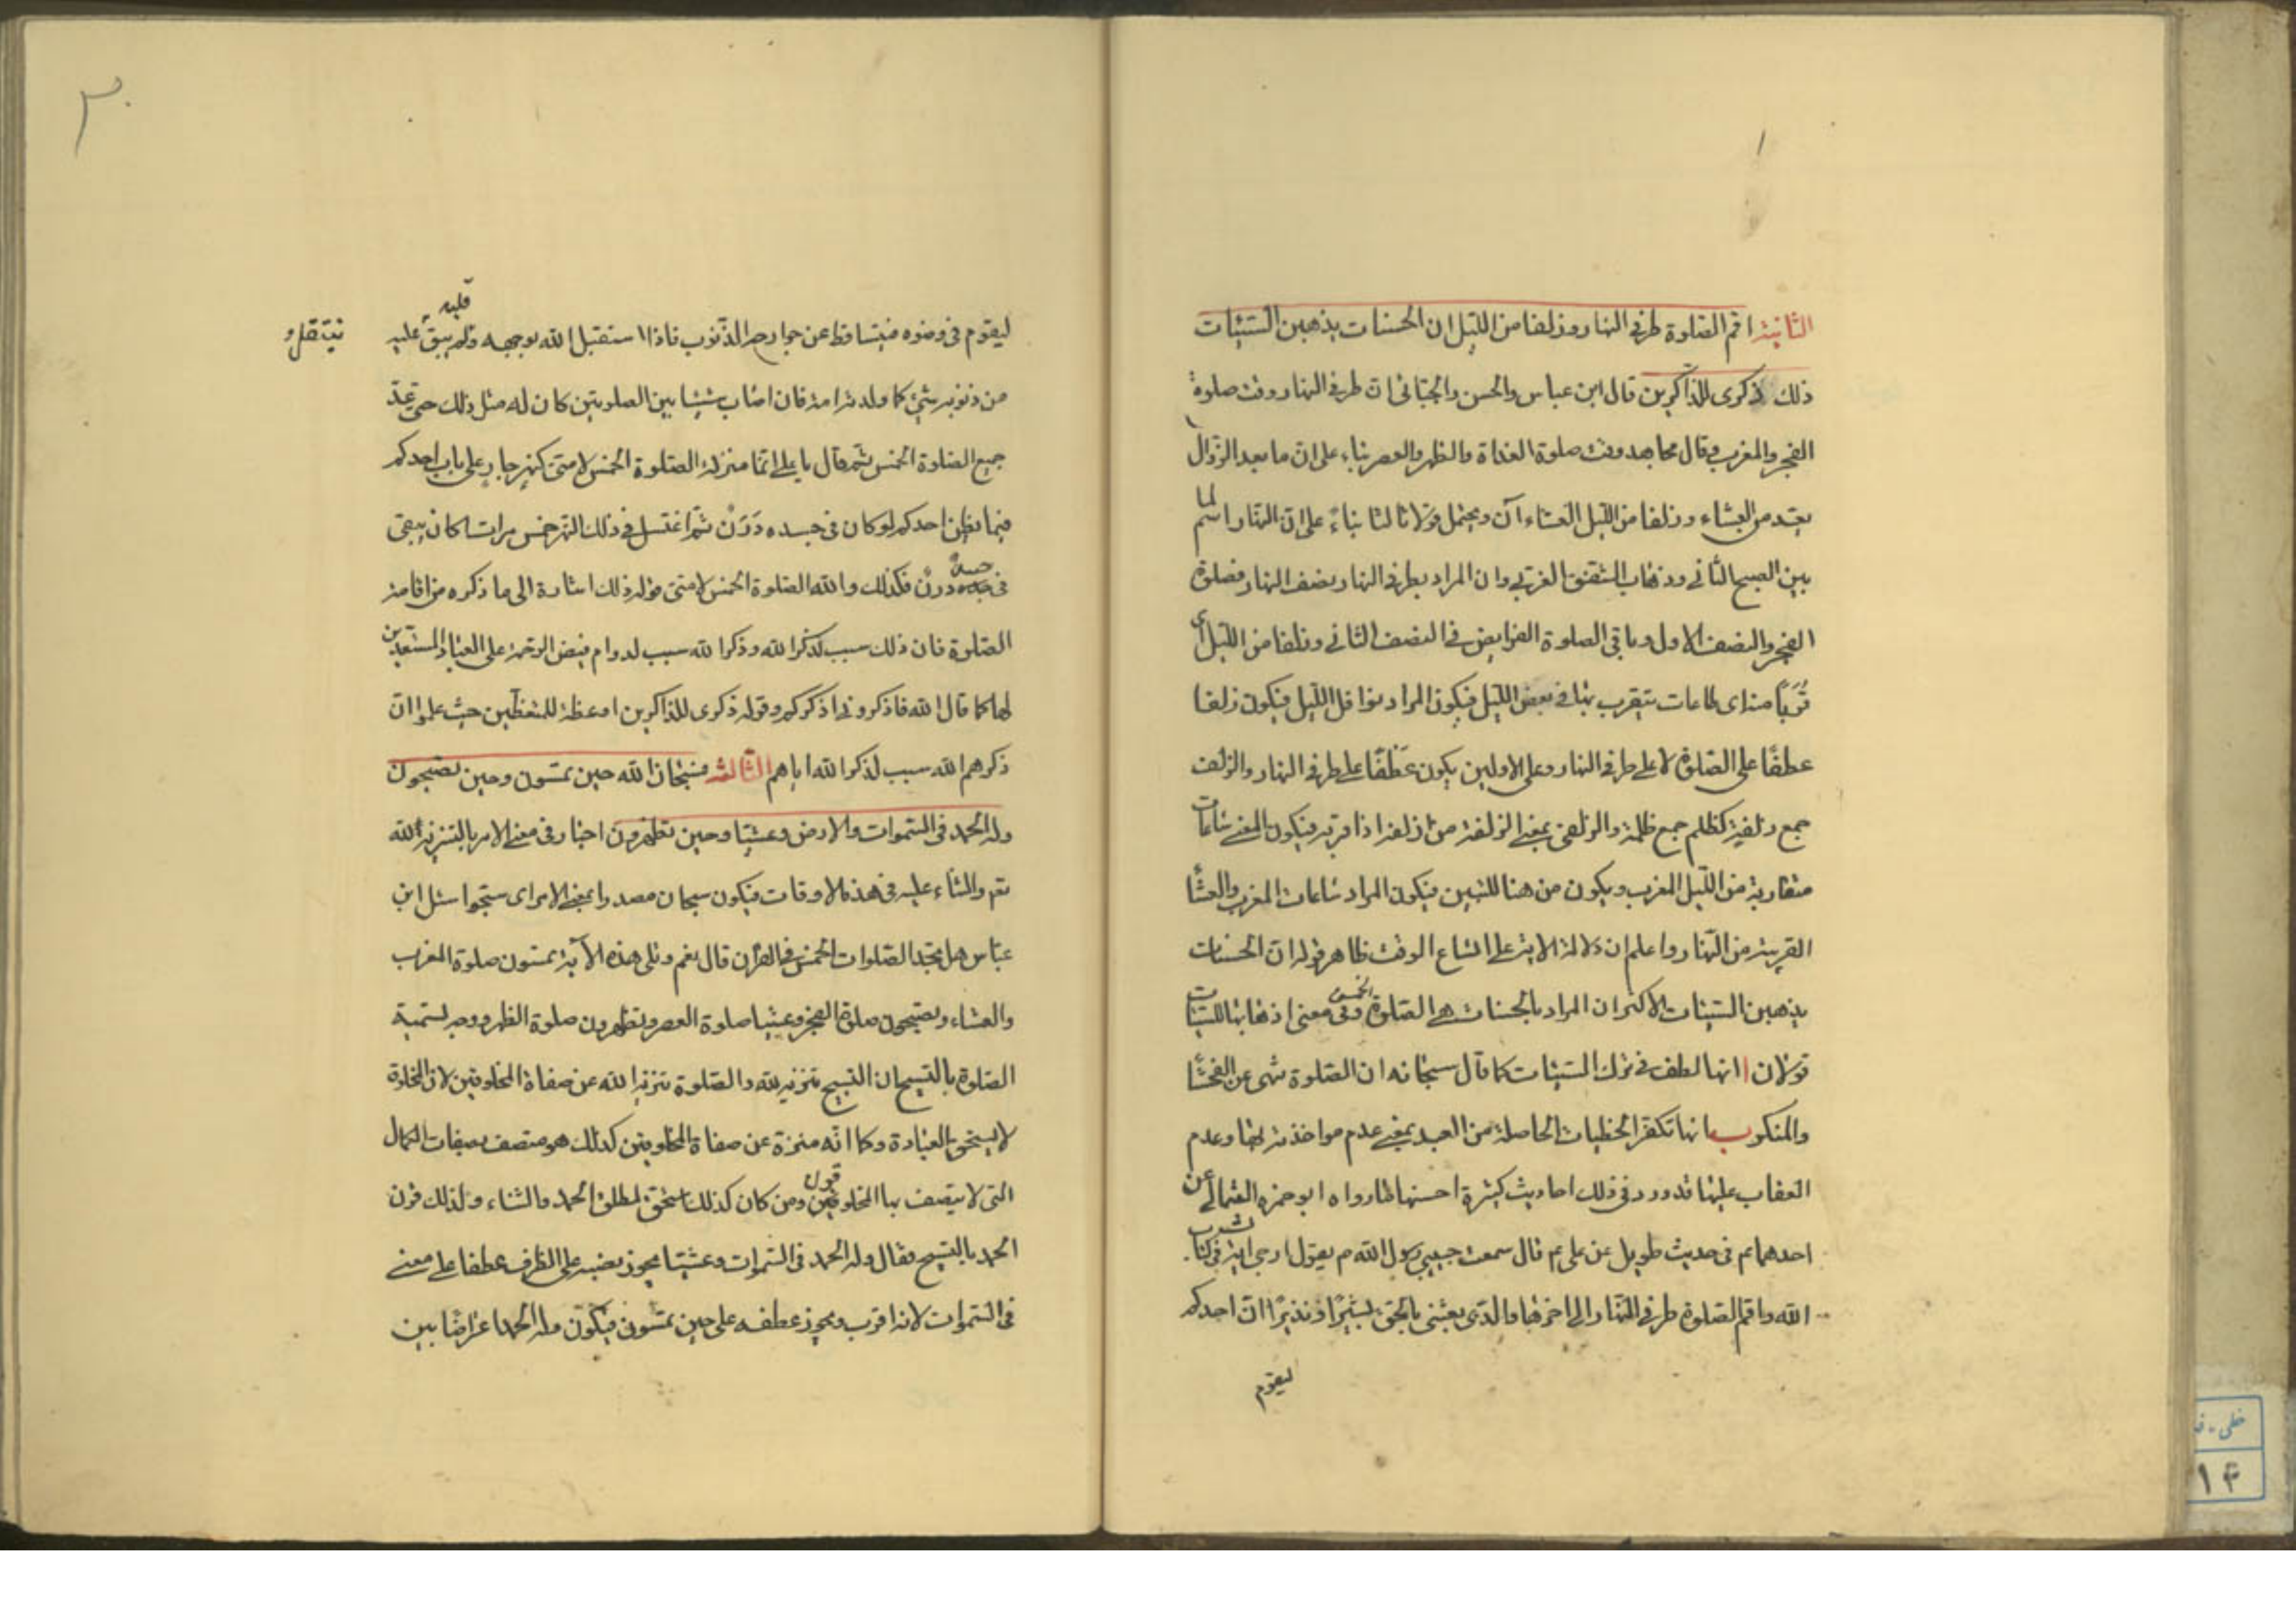 الثانية اقم الصلوة طرفى النهار وزلفا من الليل ان الحسنات يذهبن السيئات
ذلك ذكرى للذاكرين قال ابن عباس والحسن والجبائى ان طرفى النهار وقت صلوة
الفجر والمغرب وقال مجاهد وقت صلوة الغداة والظهر والعصر بناء على ان ما بعد الزوال
يعد من العشاء وزلفا من الليل العشاء آن ويحتمل قولا ثالثا بناءً على ان النهار اسم لما
بين الصبح الثانى وذهاب الشفق الغربى وان المراد بطرفى النهار نصف النهار فصلوة
الفجر والنصف الاول وباقى الصلوة الفرايض فى النصف الثانى وزلفا من الليل اى
قُرَبًا منه اى طاعات يتقرب بها فى بعض الليل فيكون المراد نوافل الليل فيكون زلفا
عطفًا على الصلوة لا على طرفى النهار وعلى الاولين يكون عَطفًا على طرفى النهار والزلف
جمع زلفة كظلم جمع ظلمة والزلفى بمعنى الزلفة من ازلفه اذا قربه فيكون المعنى ساعات
متقاربة من الليل المغرب ويكون من هنا للتبيين فيكون المراد ساعات المغرب والعشا
القريبة من النهار واعلم ان دلالة الاية على اتساع الوقت ظاهر قوله ان الحسنات
يذهبن السيئات الاكثر ان المراد بالحسنات هى الصلوة الخمس وفى معنى اذهابها للسيئات
قولان ا انها لطف فى ترك السيئات كما قال سبحانه ان الصلوة تنهى عن الفحشا
والمنكر ب انها تكفر الخطيات الحاصلة من العبد بمعنى عدم مواخذته بها وعدم
العقاب عليها قد ورد فى ذلك احاديث كثيرة احسنها ما رواه ابو حمزه الثمالى عن
احدهما ع م فى حديث طويل عن على ع م قال سمعت حبيبى رسول الله ص م يقول ارجى اية فى كتاب
الله واقم الصلوة طرفى النهار الى اخرها والذى بعثنى بالحق بشيرًا ونذيرًا ان احدكم
ليقوم
٣٠
ليقوم فى وضوه فيتساقط عن جوارحه الذنوب فاذا استقبل الله بوجهه وقلبه لم يبق عليه
ينتقل و
من ذنوبه شئ كما ولدته امه فان اصاب شيئا بين الصلوتين كان له مثل ذلك حتى عدّ
جميع الصلوة الخمس ثم قال يا على انما منزلة الصلوة الخمس لامتى كنهر جار على باب احدكم
فيما يظن احدكم لو كان فى جسده دَرَنٌ ثم اغتسل فى ذلك النهر خمس مرات اكان يبقى
فى جسده درن فكذلك والله الصلوة الخمس لامتى قوله ذلك اشارة الى ما ذكره من اقامة
الصلوة فان ذلك سبب لذكر الله وذكر الله سبب لدوام فيض الرحمة على العباد المستعدين
لها كما قال الله فاذكرونى اذكركم وقوله ذكرى للذاكرين اى عظة للمتعظين حيث علموا ان
ذكرهم الله سبب لذكر الله اياهم الثالثة فسبحان الله حين تمسون وحين تصبحون
وله الحمد فى السموات والارض وعشيا وحين تظهرون اخبار فى معنى الامر بالتنزيه لله
تع م والثناء عليه فى هذه الاوقات فيكون سبحان مصدرا بمعنى الامر اى سبحوا سئل ابن
عباس هل تجد الصلوات الخمس فى القرآن قال نعم وتلى هذه الآية تمسون صلوة المغرب
والعشاء وتصبحون صلوة الفجر وعشيا صلوة العصر وتظهرون صلوة الظهر ووجه تسمية
الصلوة بالتسبيح ان التسبيح تنزيه لله والصلوة تنزيه الله عن صفاة المخلوقين لان المخلوق
لا يستحق العبادة وكما انه منزه عن صفاة المخلوقين كذلك هو متصف بصفات الكمال
التى لا يتصف بها المخلوقون ومن كان كذلك استحق مطلق الحمد والثناء ولذلك قرن
الحمد بالتسبيح فقال وله الحمد فى السموات وعشيا يجوز نصبه على الظرف عطفا على معنى
فى السموات لانه اقرب ويجوز عطفه على حين تمسون فيكون وله الحمد اعتراضا بين